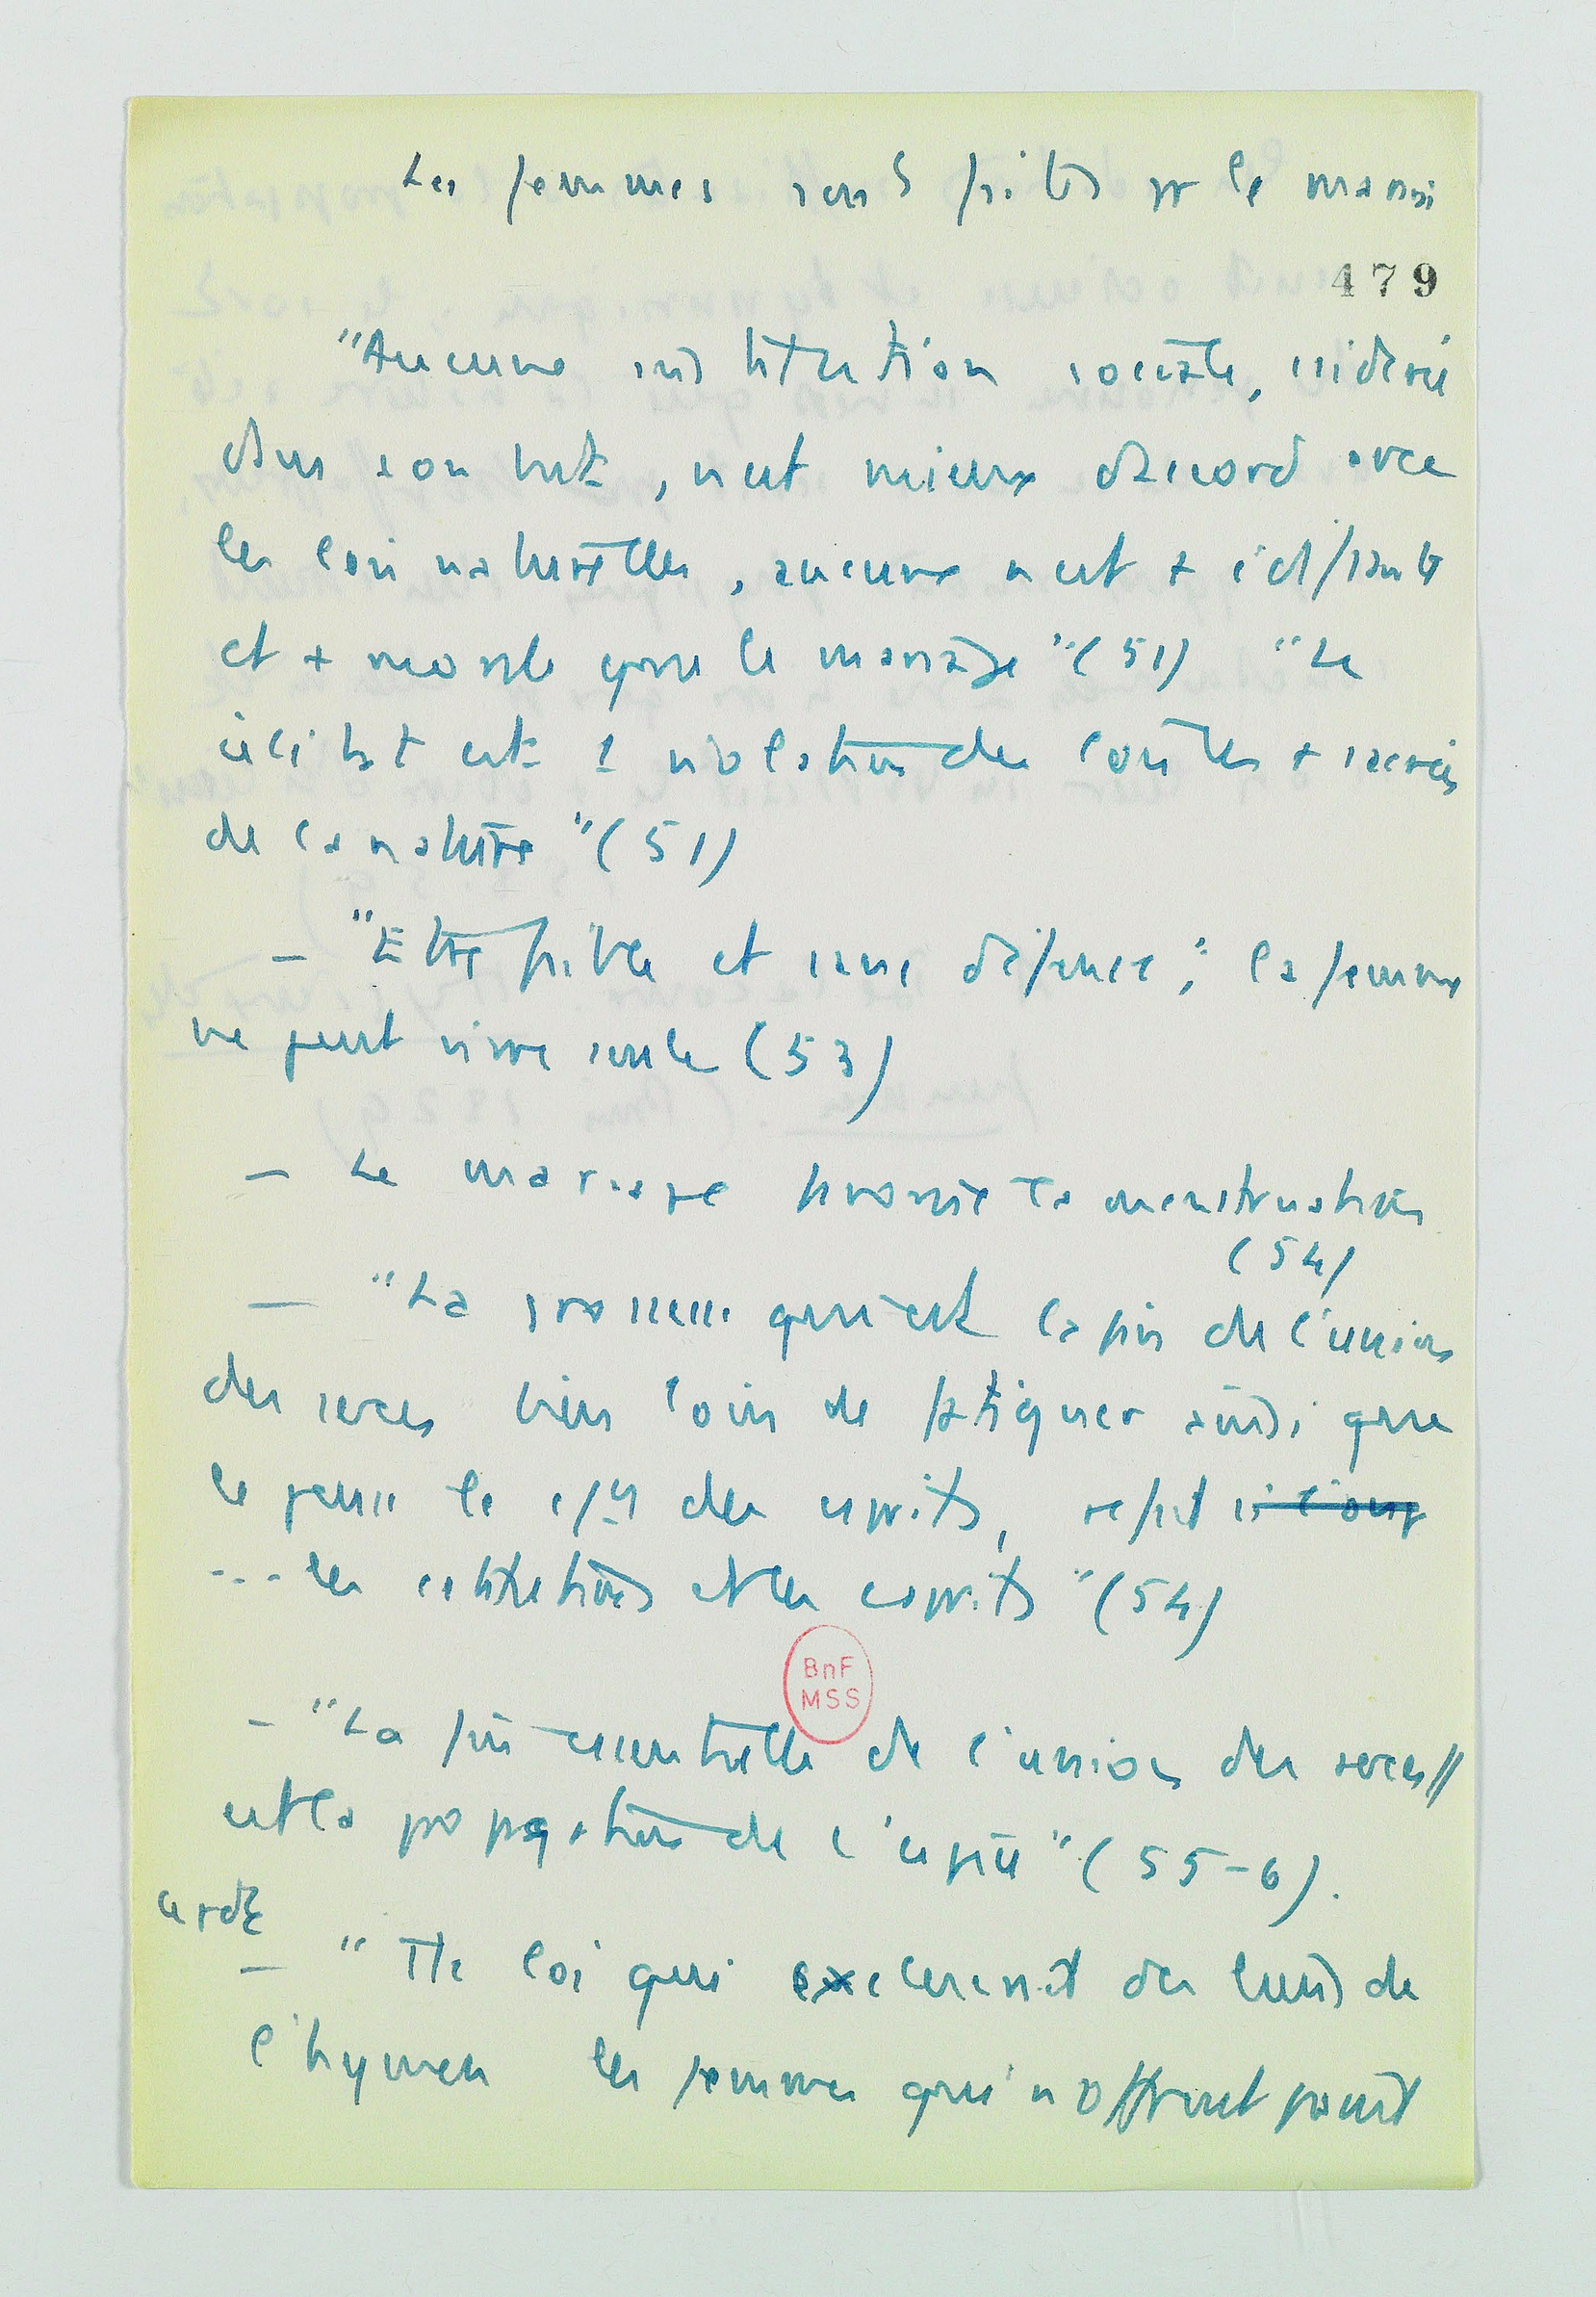 Les femmes sont faites pr le mariage
479
"Aucune institution sociale, considérée
dans son but, n'est mieux d'accord avec
les lois naturelles, aucune n'est + édifiante
et + morale que le mariage" (51) "Le
célibat est 1 violation des lois les + sacrées
de la nature" (51)
- "Etre faible et sans défense; la femme
ne peut vivre seule (53)
- Le mariage favorise la menstruation
(54)
- "La grossesse qui est la fin de l'union
des sexes bien loin de fatiguer ainsi que
le pense le des esprits, refait
... les constitutions et les esprits" (54)
BnF
MSS
- "La fin essentielle de l'union des sexes
est la propagation de l'espèce" (55-6).
- "Tte loi qui exclurait des liens de
l'hymen les femmes qui n'offrent point